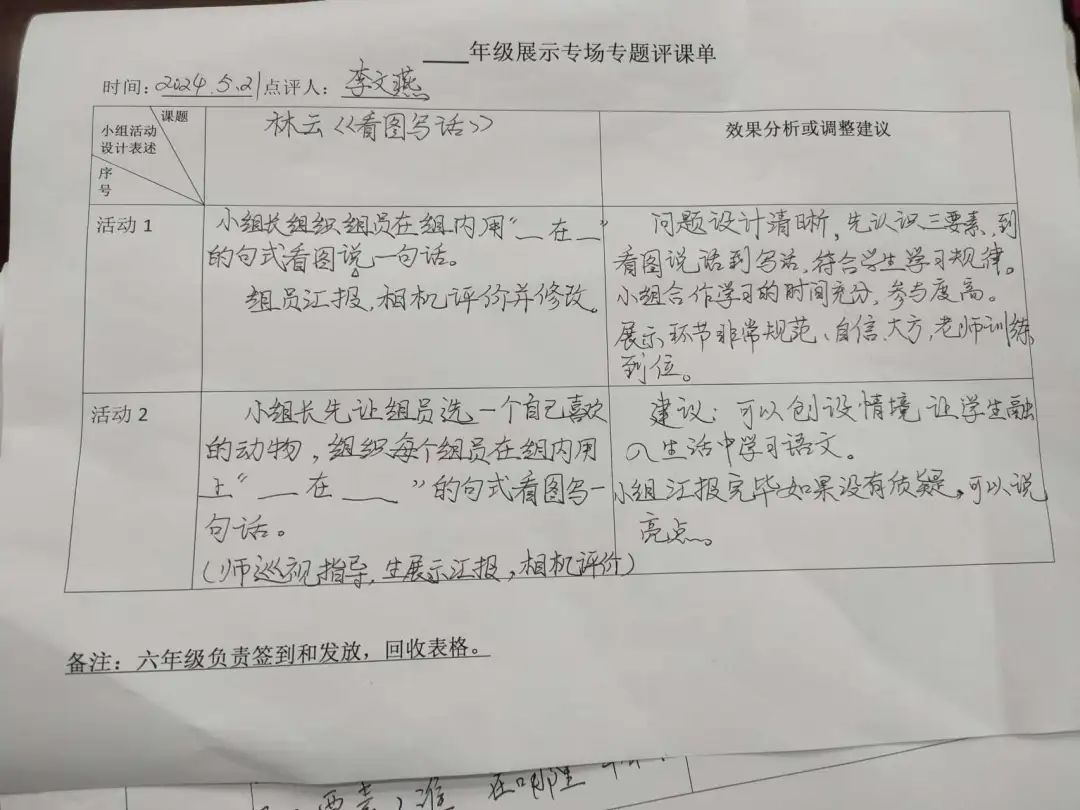 ____年级展示专场专题评课单
时间：2024.5.21 点评人：李文燕
课题
小组活动
设计表述
序
号
林云《看图写话》
效果分析或调整建议
活动 1
小组长组织组员在组内用“__在__”
的句式看图说一句话。
组员汇报，相机评价并修改。
问题设计清晰，先认识三要素，到
看图说话到写话，符合学生学习规律。
小组合作学习的时间充分，参与度高。
展示环节非常规范、自信、大方，老师训练
到位。
活动 2
小组长先让组员选一个自己喜欢
的动物，组织每个组员在组内用
上“__在___”的句式看图写一
句话。
(师巡视指导，生展示汇报，相机评价)
建议：可以创设情境让学生融
入生活中学习语文。
小组汇报完毕如果没有质疑，可以说
亮点。
备注：六年级负责签到和发放，回收表格。
谁 在哪里